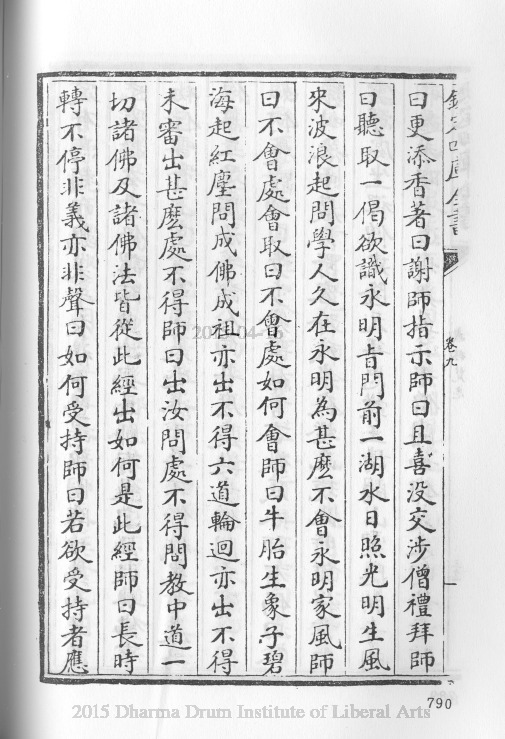 欽定四庫全書
卷九
曰更添香著曰謝師指示師曰且喜没交涉僧禮拜師
曰聽取一偈欲識永明旨門前一湖水日照光明生風
來波浪起問學人久在永明為甚麽不會永明家風師
曰不會處會取曰不會處如何會師曰牛胎生象子碧
海起紅塵問成佛成祖亦出不得六道輪迴亦出不得
未審出甚麽處不得師曰出汝問處不得問教中道一
切諸佛及諸佛法皆從此經出如何是此經師曰長時
轉不停非義亦非聲曰如何受持師曰若欲受持者應
790
2015 Dharma Drum Institute of Liberal Arts